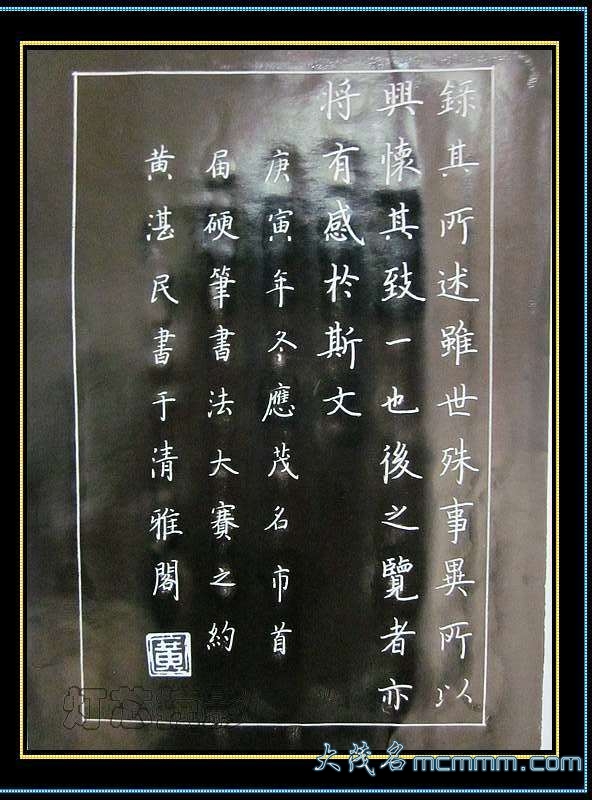 錄其所述雖世殊事異所以
興懷其致一也後之覽者亦
将有感於斯文
庚寅年冬應茂名市首
届硬筆書法大賽之約
黄湛民書于清雅閣
黄
灯芯摄影
大茂名mcmmm.com